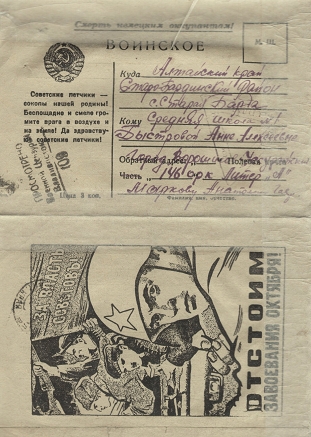 Смерть немецким оккупантам!
ВОИНСКОЕ
Советские летчики —
соколы нашей родины!
Беспощадно и смело гро-
мите врага в воздухе и
на земле! Да здравству-
ют советские летчики!
Цена 3 коп.
Куда Алтайский край
Старо-Бардинский район
с. Старая Барда
Кому Средняя школа
Быстровой Анне Алексеевне
Обратный адрес: Полевая
Часть
Литер "А"
Фамилия, имя, отчество.
ПРОСМОТРЕНО
ЗА ВЛАСТЬ
СОВЕТОВ
ОТСТОИМ
ЗАВОЕВАНИЯ ОКТЯБРЯ!